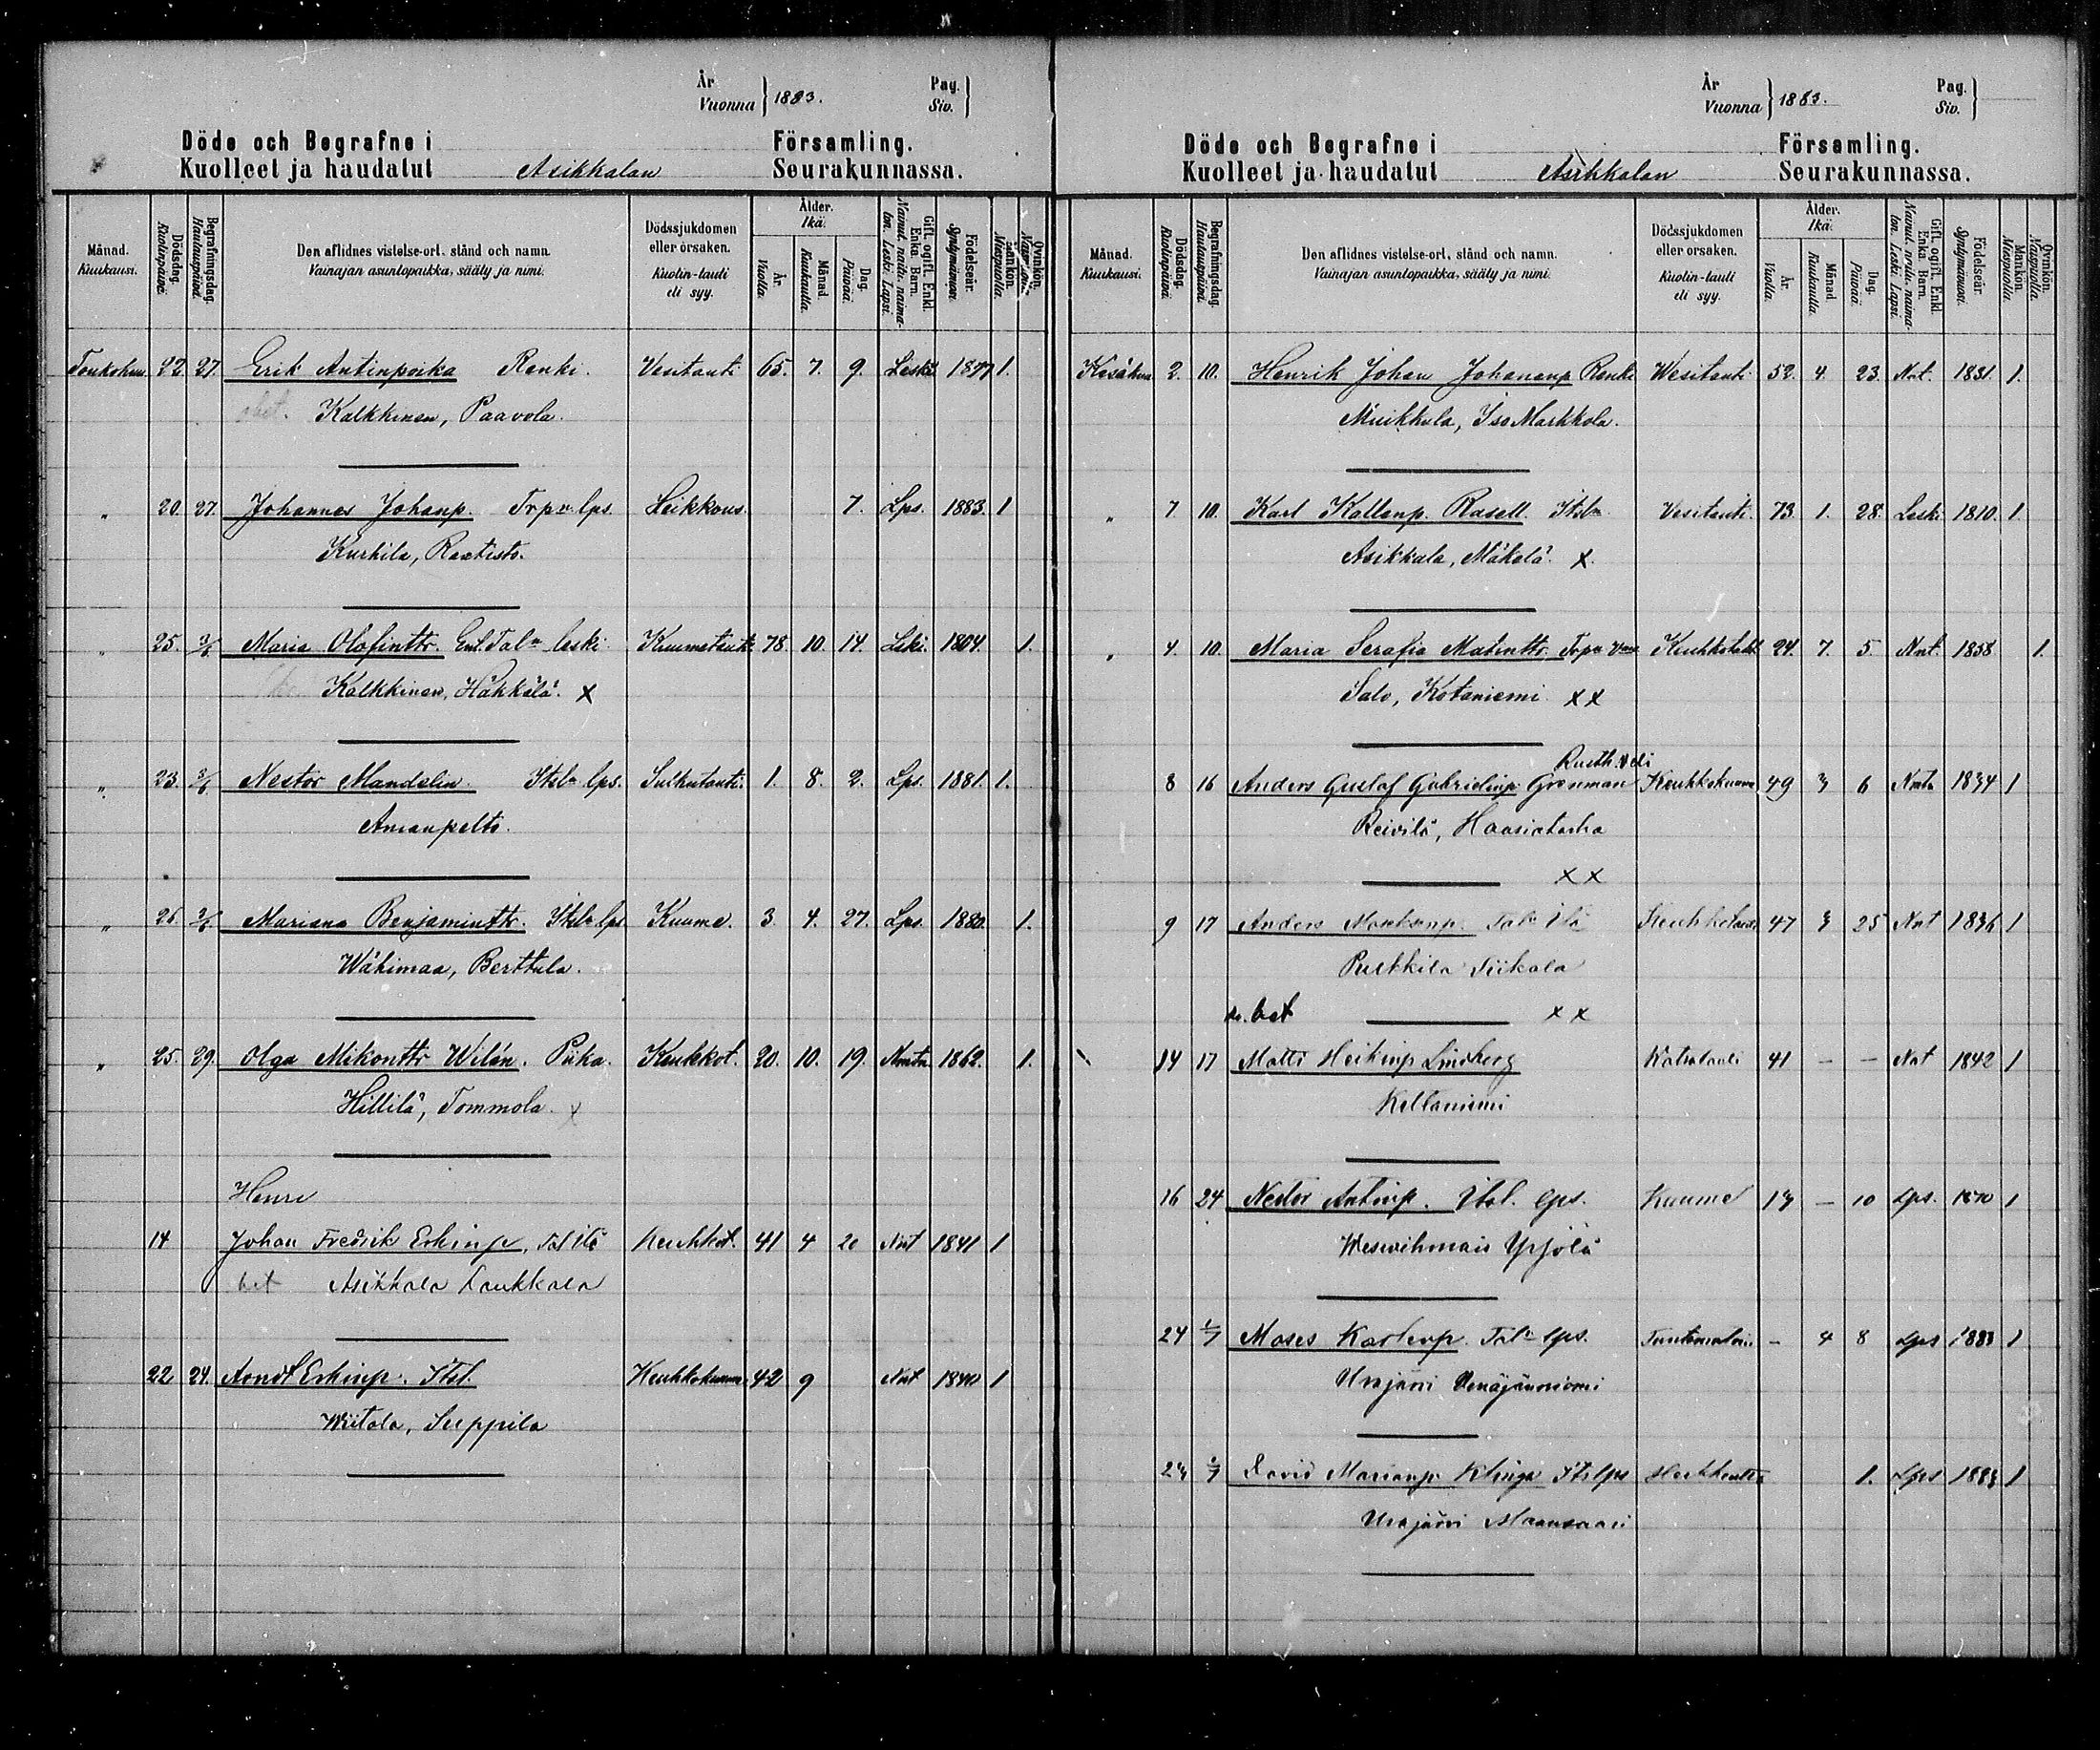 År
Vuonna } 1883. Pag.
Siv. }
Döde och Begrafne i Församling.
Kuolleet ja haudatut Asikkalan Seurakunnassa.
Månad.
Kuukausi.
Dödsdag.
Kuolinpäivä.
Begrafningsdag.
Hautauspäivä.
Den aflidnes vistelse-ort, stånd och namn.
Vainajan asuntopaikka, sääty ja nimi.
Dödssjukdomen
eller orsaken.
Kuolin-tauti
eli syy.
Ålder.
Ikä.
År.
Vuotta.
Månad.
Kuukautta.
Dag.
Päivää.
Gift, ogift. Enkl.
Enka. Barn.
Nainut, naitu, naima-
ton. Leski. Lapsi.
Födelseår.
Syntymävuosi.
Mankön.
Miespuolia.
Qvinkön.
Naispuolia.
Toukokuu. 22. 27. Erik Antinpoika Renki. Vesitauti 65. 7. 9. Leski 1.
Kalkkinen, Paavola.
" 20. 27. Johannes Johanp. Trpn lps. Leikkous. 7. Lps. 1883. 1
Kurhila, Raatisto.
" 25. 3/6 Maria Olofintr. Ent. Taln leski Kuumetauti 78. 10. 14. Leski. 1804. 1.
Kalkkinen, Häkkälä. x
" 23. 3/6 Nestor Mandelin. Itsln lps. Sulkutauti. 1. 8. 2. Lps. 1881. 1.
Anianpelto.
" 26. 3/6 Mariana Benjamintr. Itsln lps. Kuume. 3. 4. 27. Lps. 1880. 1.
Wähimaa, Berttula.
" 25. 29. Olga Mikontr Wilén. Piika. Keuhkot. 20. 10. 19. Nmtn 1862. 1.
Hillilä, Tommola. x
Henri
14 Johan Fredrik Erkinp. Tal itä Keuhkot. 41 4 20 Nnt 1841 1
bet Asikkala Laukkala
22 24. Erkinp. Itsl. Keuhkokuume 42 9 Nnt 1840 1
Wiitala, Seppilä
År
Vuonna } 1883. Pag.
Siv. }
Döde och Begrafne i Församling.
Kuolleet ja haudatut Asikkalan Seurakunnassa.
Månad.
Kuukausi.
Dödsdag.
Kuolinpäivä.
Begrafningsdag.
Hautauspäivä.
Den aflidnes vistelse-ort, stånd och namn.
Vainajan asuntopaikka, sääty ja nimi.
Dödssjukdomen
eller orsaken.
Kuolin-tauti
eli syy.
Ålder.
Ikä.
År.
Vuotta.
Månad.
Kuukautta.
Dag.
Päivää.
Gift, ogift. Enkl.
Enka. Barn.
Nainut, naitu, naima-
ton. Leski. Lapsi.
Födelseår.
Syntymävuosi.
Mankön.
Miespuolia.
Qvinkön.
Naispuolia.
Kesäkuu 2. 10. Henrik Johan Johananp. Renki Wesitauti 52. 4. 23. Nnt. 1831. 1.
Muikkula, Iso Markkola.
" 7 10. Karl Kallenp. Rasell. Itsln Vesitauti. 73. 1. 28. Leski 1810. 1.
Asikkala, Mäkelä. x.
" 4. 10. Maria Serafia Matintr. Trpn Keuhkotauti 24. 7. 5 Nnt. 1858 1.
Salo, Kotaniemi x x
8 16 Anders Gustaf Gabrielinp. Grenman Keuhkokuume 49 3 6 Nmtn 1834 1
Reivilä,
x x
9 17 Anders Markunp. Taln itä Keuhkotauti 47 3 25 Nnt 1836 1
Purkkila Tiikala
bet x x
14 17 Matti Heikinp Lindberg 41 — — Nnt 1842 1
Keltaniemi
16 24 Nestor Antinp. Itsl. lps. Kuume 13 — 10 Lps. 1870 1
Yrjölä
24 1/7 Moses Karlenp. Taln lps. Tuntematon — 4 8 Lps 1883 1
Urajärvi
24 1/7 David Marianp Klinga Itslps Heikkous 1. Lps 1883 1
Urajärvi